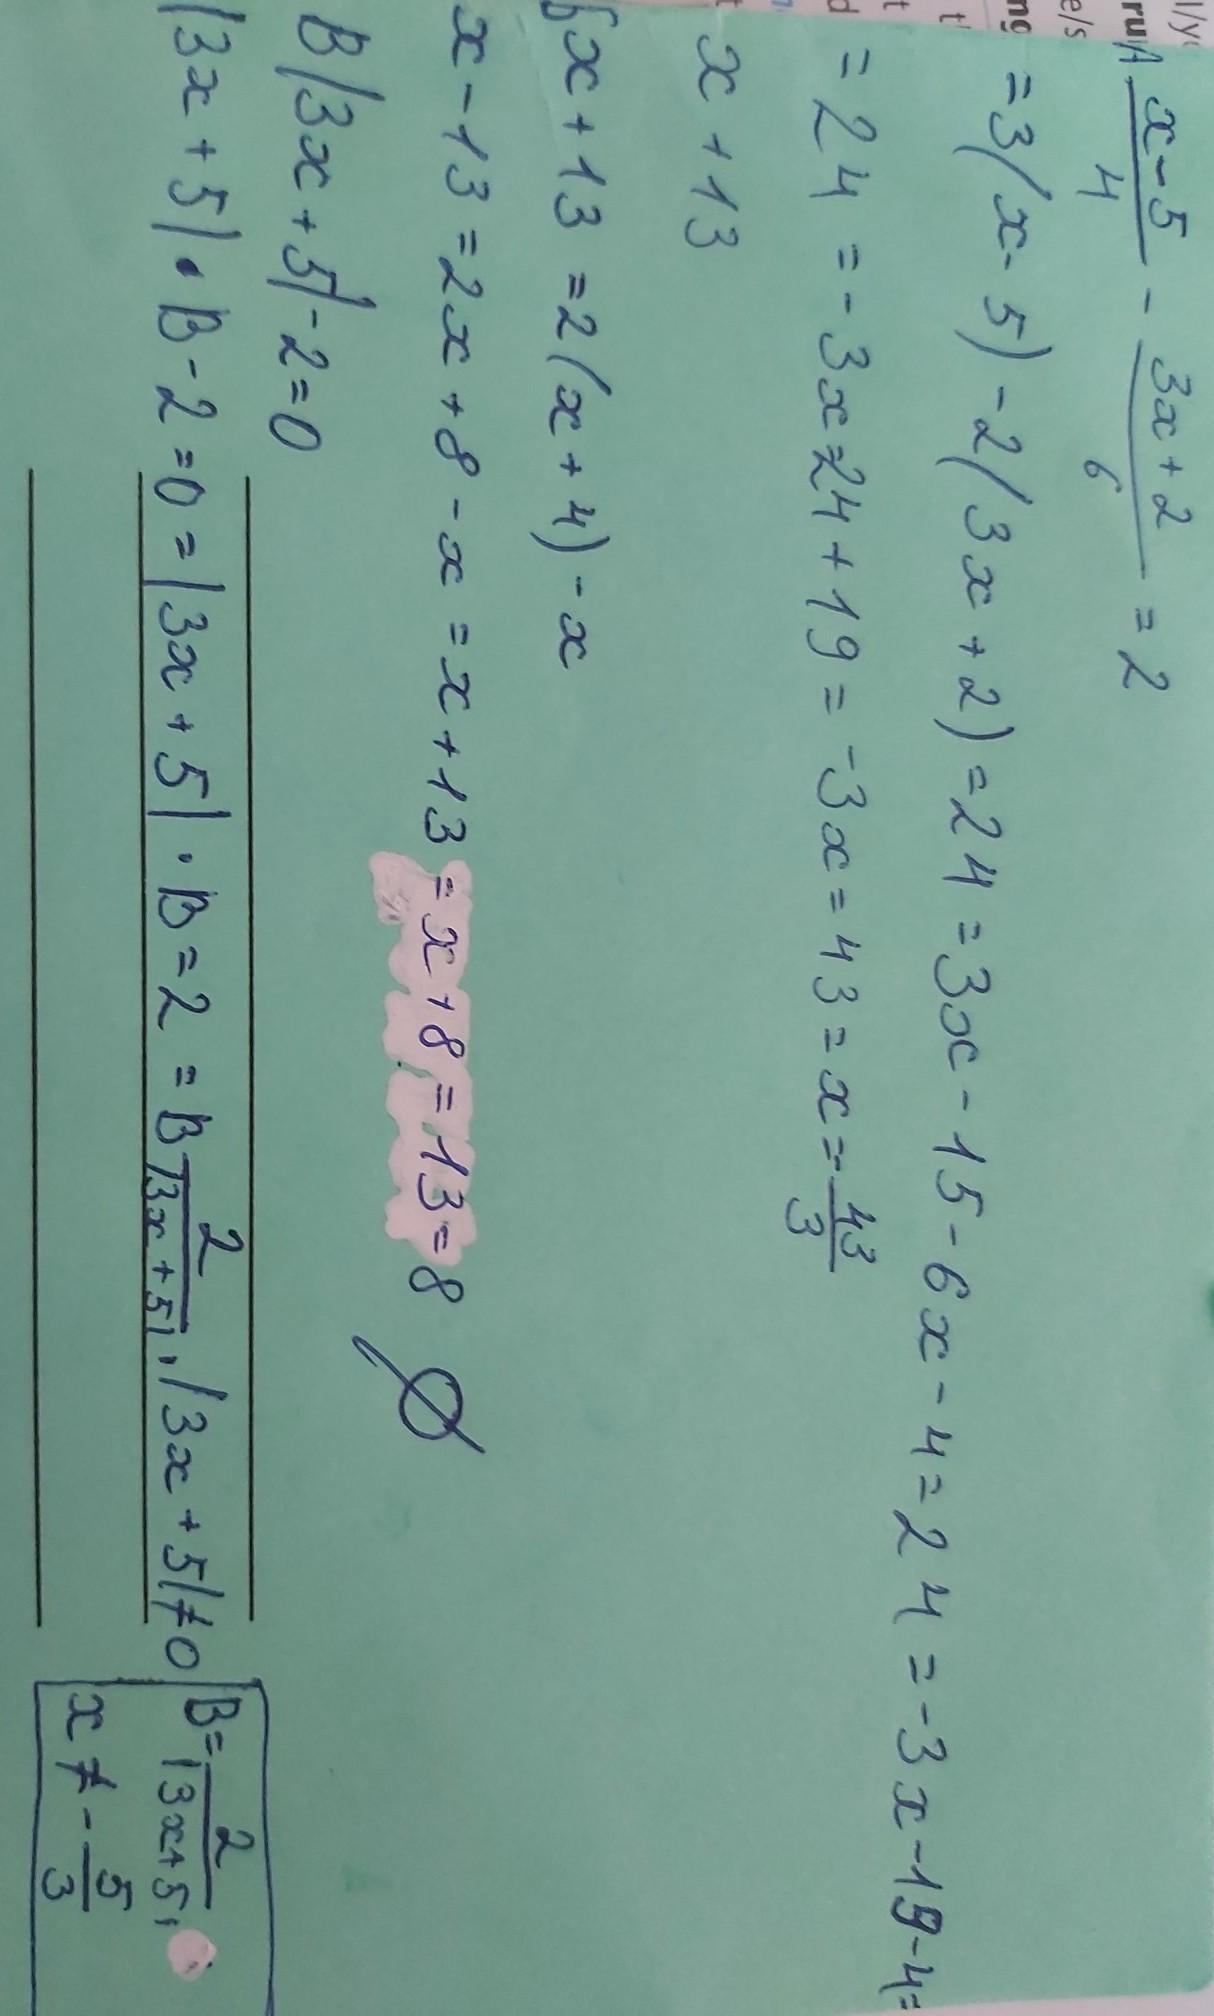 A x-5/4 - 3x+2/6 = 2
=3(x-5)-2(3x+2)=24=3x-15-6x-4=24=-3x-19-4=
=24=-3x=24+19=-3x=43=x=-43/3
x+13
x+13=2(x+4)-x
x-13=2x+8-x=x+13=x+8=13=8 Ø
B|3x+5|-2=0
|3x+5|·B-2=0=|3x+5|·B=2=B 2/|3x+5|,|3x+5|≠0
B=2/|3x+5|,
x≠-5/3